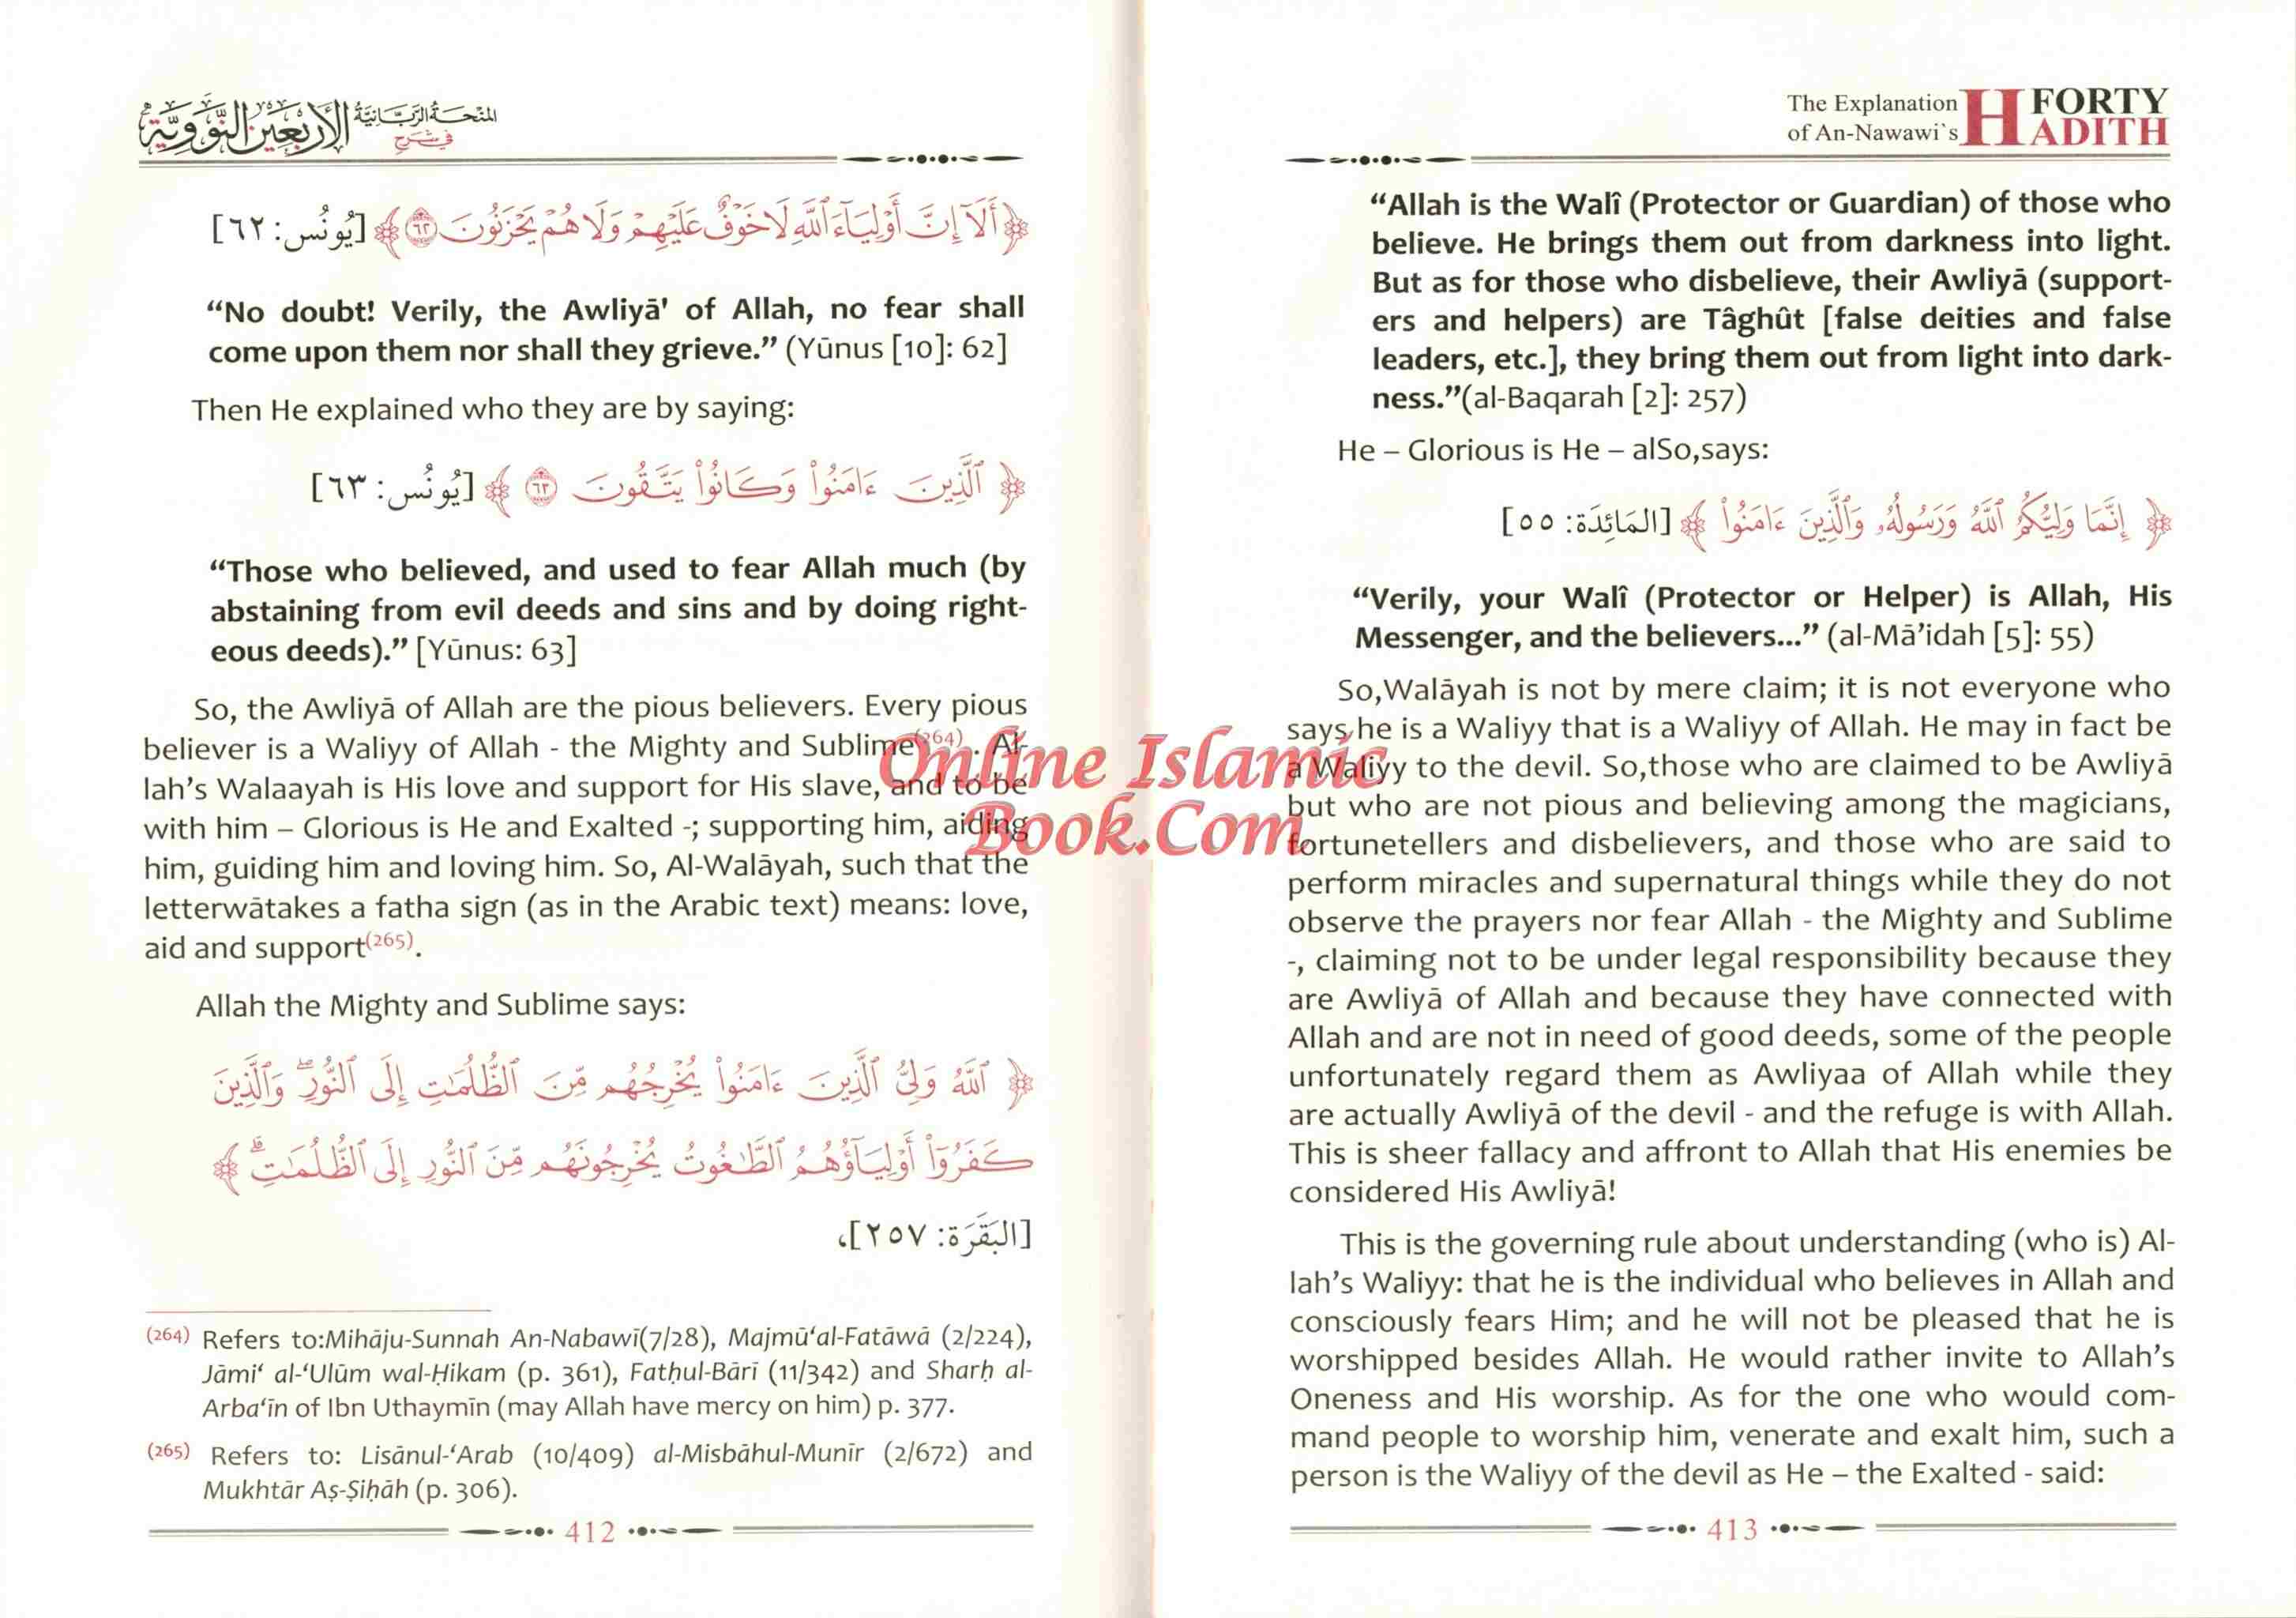 المنحة الربانية في شرح الأربعين النووية
﴿أَلَآ إِنَّ أَوْلِيَآءَ ٱللَّهِ لَا خَوْفٌ عَلَيْهِمْ وَلَا هُمْ يَحْزَنُونَ ٦٢﴾ [يُونُس: ٦٢]
“No doubt! Verily, the Awliyā' of Allah, no fear shall
come upon them nor shall they grieve.” (Yūnus [10]: 62]
Then He explained who they are by saying:
﴿ٱلَّذِينَ ءَامَنُوا۟ وَكَانُوا۟ يَتَّقُونَ ٦٣﴾ [يُونُس: ٦٣]
“Those who believed, and used to fear Allah much (by
abstaining from evil deeds and sins and by doing right-
eous deeds).” [Yūnus: 63]
So, the Awliyā of Allah are the pious believers. Every pious
believer is a Waliyy of Allah - the Mighty and Sublime(264). Al-
lah’s Walaayah is His love and support for His slave, and to be
with him – Glorious is He and Exalted -; supporting him, aiding
him, guiding him and loving him. So, Al-Walāyah, such that the
letterwātakes a fatha sign (as in the Arabic text) means: love,
aid and support(265).
Allah the Mighty and Sublime says:
﴿ٱللَّهُ وَلِىُّ ٱلَّذِينَ ءَامَنُوا۟ يُخْرِجُهُم مِّنَ ٱلظُّلُمَـٰتِ إِلَى ٱلنُّورِ ۖ وَٱلَّذِينَ
كَفَرُوٓا۟ أَوْلِيَآؤُهُمُ ٱلطَّـٰغُوتُ يُخْرِجُونَهُم مِّنَ ٱلنُّورِ إِلَى ٱلظُّلُمَـٰتِ ۗ﴾
[البَقَرَة: ٢٥٧]،
(264) Refers to:Mihāju-Sunnah An-Nabawī(7/28), Majmū‘al-Fatāwā (2/224),
Jāmi‘ al-‘Ulūm wal-Ḥikam (p. 361), Fatḥul-Bārī (11/342) and Sharḥ al-
Arba‘īn of Ibn Uthaymīn (may Allah have mercy on him) p. 377.
(265) Refers to: Lisānul-‘Arab (10/409) al-Misbāhul-Munīr (2/672) and
Mukhtār Aṣ-Ṣiḥāh (p. 306).
412
The Explanation
of An-Nawawi`s
FORTY
HADITH
“Allah is the Walî (Protector or Guardian) of those who
believe. He brings them out from darkness into light.
But as for those who disbelieve, their Awliyā (support-
ers and helpers) are Tâghût [false deities and false
leaders, etc.], they bring them out from light into dark-
ness.”(al-Baqarah [2]: 257)
He – Glorious is He – alSo,says:
﴿إِنَّمَا وَلِيُّكُمُ ٱللَّهُ وَرَسُولُهُۥ وَٱلَّذِينَ ءَامَنُوا۟﴾ [المَائِدَة: ٥٥]
“Verily, your Walî (Protector or Helper) is Allah, His
Messenger, and the believers...” (al-Mā’idah [5]: 55)
So,Walāyah is not by mere claim; it is not everyone who
says he is a Waliyy that is a Waliyy of Allah. He may in fact be
a Waliyy to the devil. So,those who are claimed to be Awliyā
but who are not pious and believing among the magicians,
fortunetellers and disbelievers, and those who are said to
perform miracles and supernatural things while they do not
observe the prayers nor fear Allah - the Mighty and Sublime
-, claiming not to be under legal responsibility because they
are Awliyā of Allah and because they have connected with
Allah and are not in need of good deeds, some of the people
unfortunately regard them as Awliyaa of Allah while they
are actually Awliyā of the devil - and the refuge is with Allah.
This is sheer fallacy and affront to Allah that His enemies be
considered His Awliyā!
This is the governing rule about understanding (who is) Al-
lah’s Waliyy: that he is the individual who believes in Allah and
consciously fears Him; and he will not be pleased that he is
worshipped besides Allah. He would rather invite to Allah’s
Oneness and His worship. As for the one who would com-
mand people to worship him, venerate and exalt him, such a
person is the Waliyy of the devil as He – the Exalted - said:
413
Online Islamic
Book.Com